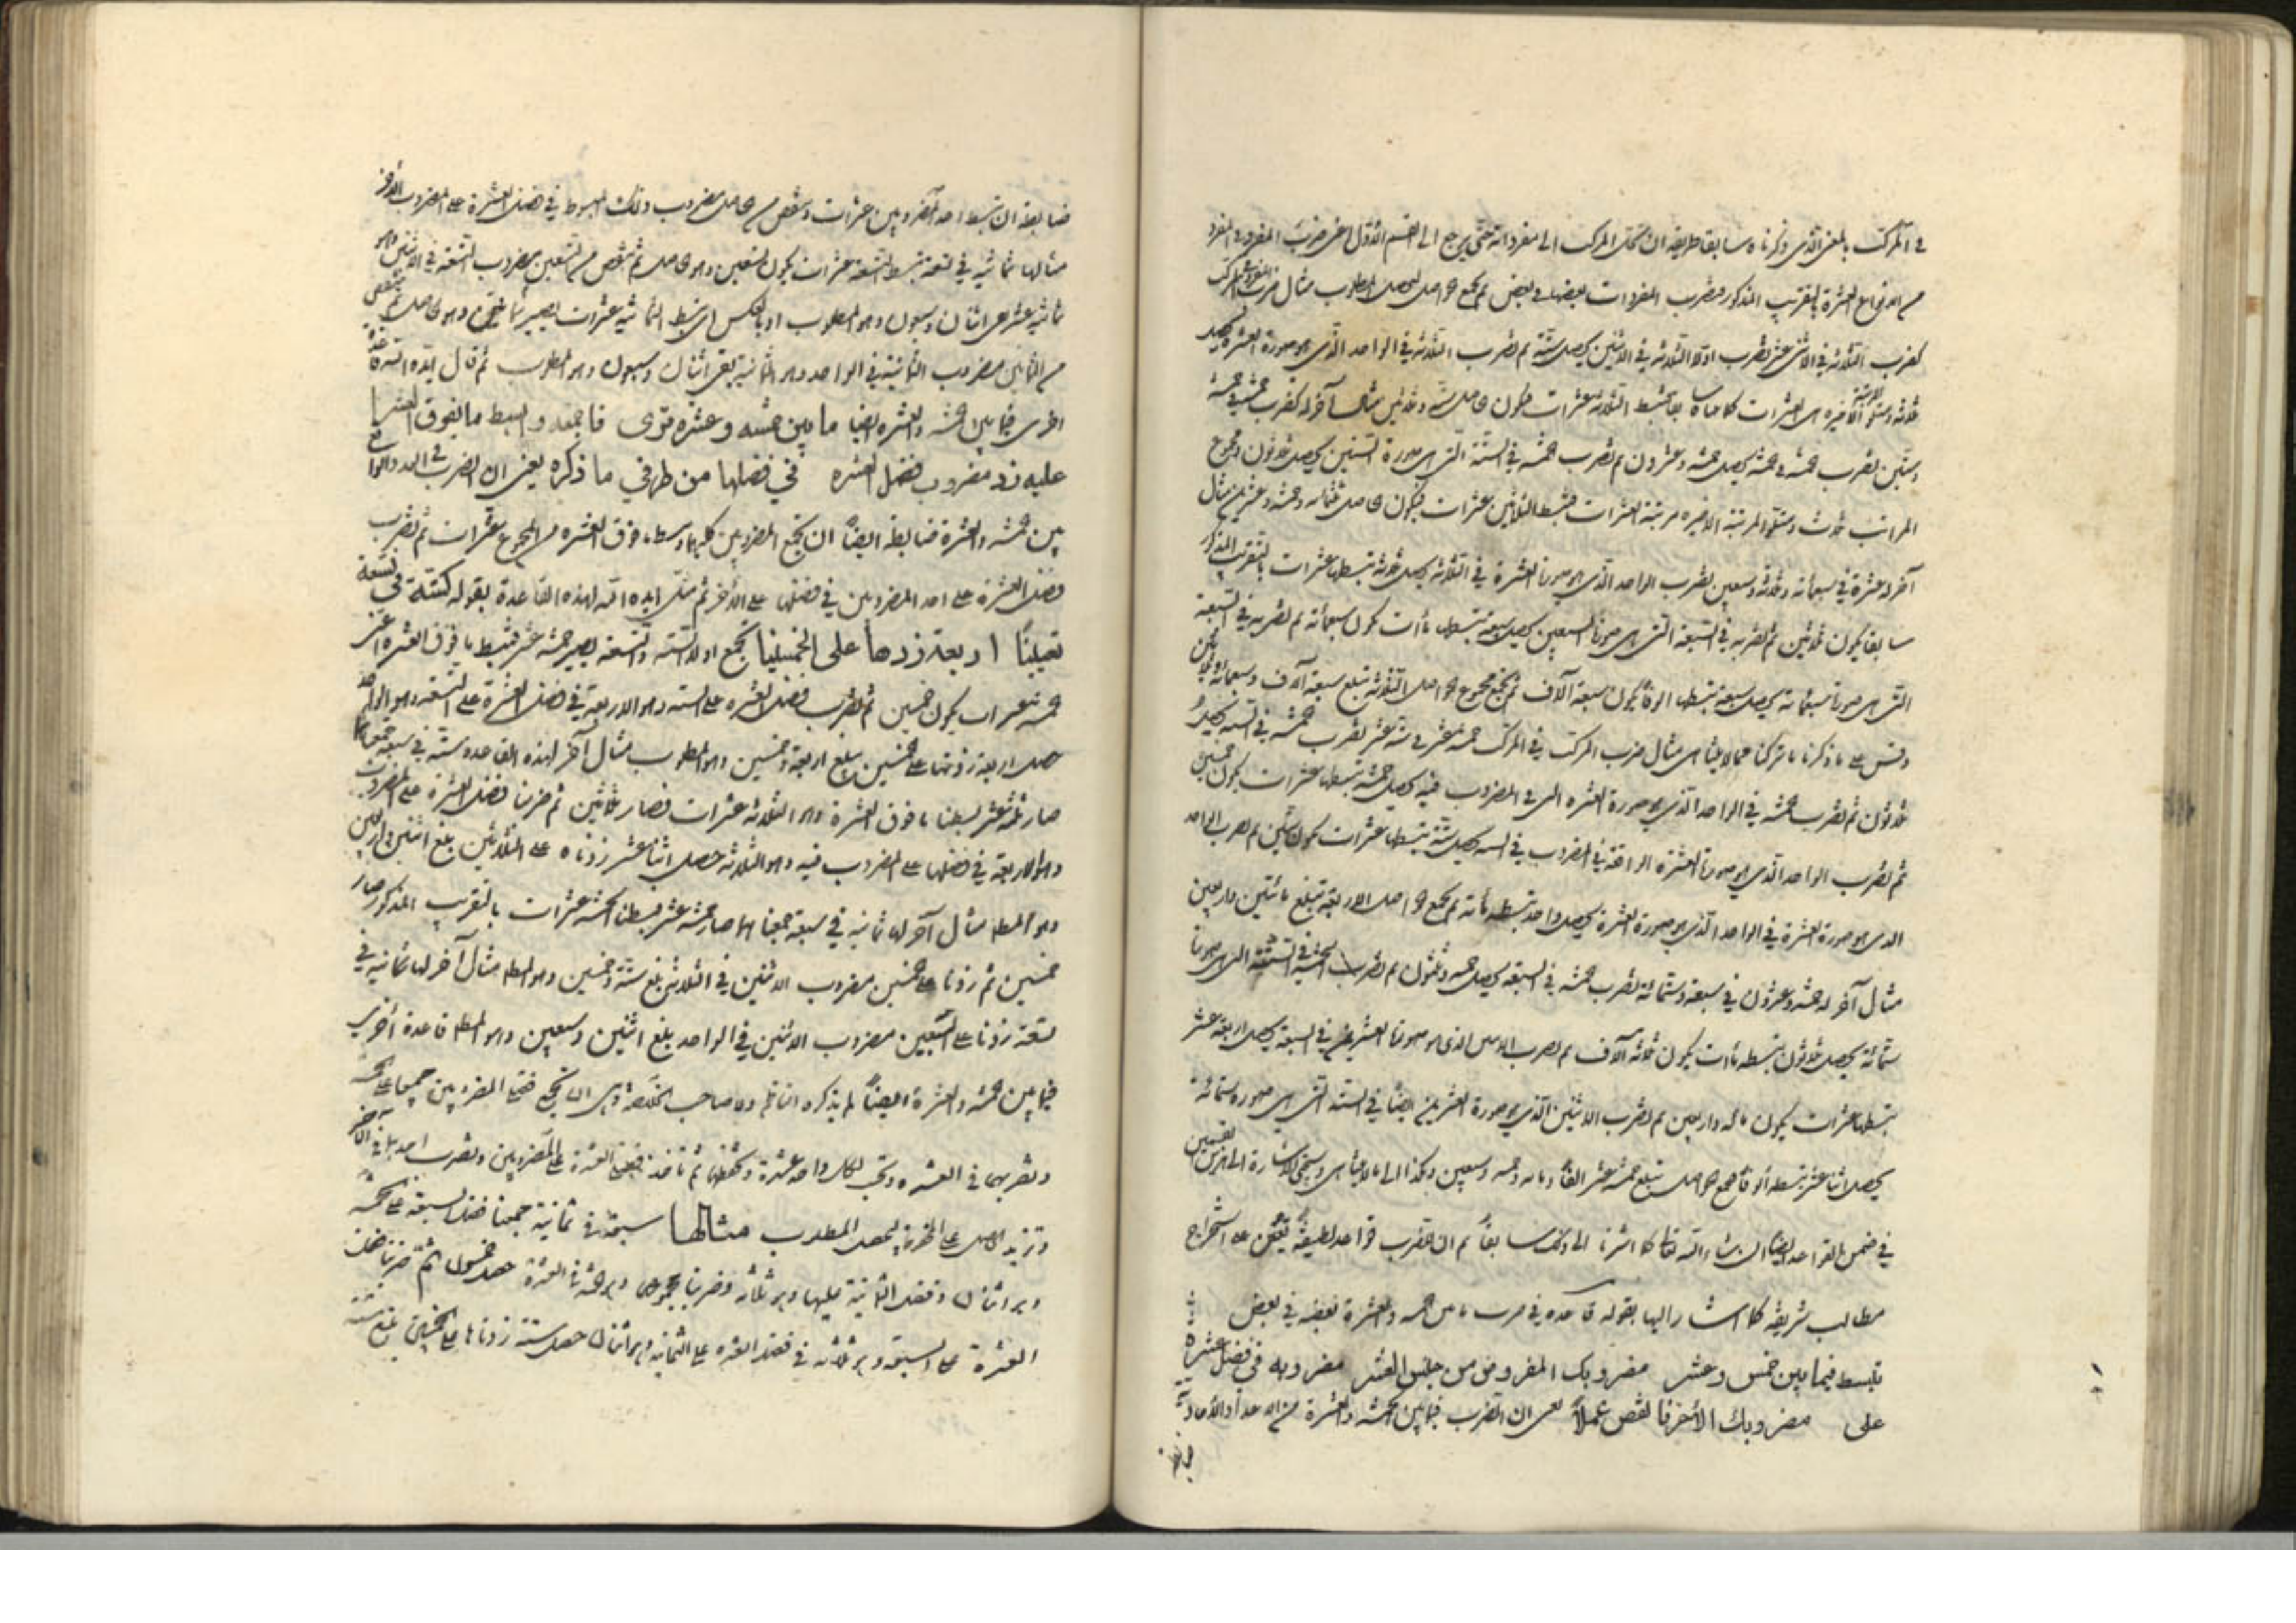 في المركب بالمعنى الذي ذكرناه سابقا طريقه ان تحلل المركب الى مفرداته حتى يرجع الى القسم الأول اعني ضرب المفرد في المفرد
المذكور فتضرب المفردات بعضها في بعض ثم تجمع الحواصل ليحصل المطلوب مثال ضرب المفرد في المركب
كضرب الثلاثة في الاثنى عشر تضرب اولا الثلاثة في الاثنين يحصل ستة ثم تضرب الثلاثة في الواحد الذي هو صورة العشرة يحصل
ثلاثة العشرات كما مر سابقا فتبسط الثلاثة عشرات فيكون الحاصل ستة وثلاثين مثال آخر له كضرب خمسة في خمسة
وستين تضرب خمسة في خمسة يحصل خمسة وعشرون ثم تضرب خمسة في الستة التي هي صورة الستين يحصل ثلاثون ومجموع
المراتب ثلاث ومتلو المرتبة الاخيرة مرتبة العشرات فتبسط الثلاثين عشرات فيكون الحاصل ثلثمائه وخمسة وعشرين مثال
آخر له عشرة في سبعمائة وثلاثة وسبعين تضرب الواحد الذي هو صورة العشرة في الثلاثة يحصل ثلاثة تبسطها عشرات بالتقريب المذكور
سابقا يكون ثلاثين ثم تضربه في السبعة التي هي صورة السبعين يحصل سبعة تبسطها مآت يكون سبعمائة ثم تضربه في السبعة
التي هي صورة سبعمائة يحصل سبعة تبسطها الوفا يكون سبعة آلاف ثم تجمع مجموع حواصل الثلاثة تبلغ سبعة آلاف وسبعمائة وثلثين
وقس على ما ذكرنا ما تركنا مما لا يتناهى مثال ضرب المركب في المركب خمسة عشر في ستة عشر تضرب خمسة في الستة يحصل
ثلاثون ثم تضرب خمسة في الواحد الذي هو صورة العشرة التي في المضروب فيه يحصل خمسة تبسطها عشرات يكون خمسين
ثم تضرب الواحد الذي هو صورة العشرة الواقعة في المضروب في الستة يحصل ستة تبسطها عشرات يكون ستين ثم تضرب الواحد
الذي هو صورة العشرة في الواحد الذي هو صورة العشرة يحصل واحد تبسطه مائة ثم تجمع الحواصل الاربعة تبلغ مائتين واربعين
مثال آخر له خمسة وعشرون في سبعة وستمائة تضرب خمسة في السبعة يحصل خمسة وثلثون ثم تضرب الخمسة في الستة التي هي صورة
ستمائة يحصل ثلاثون تبسطه مآت يكون ثلاثة آلاف ثم تضرب الاثنين الذي هو صورة العشرين في السبعة يحصل اربعة عشر
تبسطها عشرات يكون مائة واربعين ثم تضرب الاثنين الذي هو صورة العشرين ايضا في الستة التي هي صورة ستمائة
يحصل اثنا عشر تبسطه ألوفا تجمع الحواصل تبلغ خمسة عشر الفا ومائة وخمسة وسبعين وهكذا الى ما لا يتناهى
في ضمن القواعد ايضا ان شاء الله تعالى كما اشرنا الى ذلك سابقا ثم ان للضرب قواعد لطيفة تعين على استخراج
مطالب شريفة كما اشار اليها بقوله قاعدة في ضرب ما بين خمسة والعشرة بعضه في بعض
تبسط فيما بين خمس وعشر مضروبك المفروض من جنس العشر مضروبه في فضل عشرة
على مضروبك الأخر فانقص عملاً يعني ان الضرب فيما بين الخمسة والعشرة من الاعداد والآحاد
ضابطه ان تبسط احد المضروبين عشرات وتنقص من حاصل مضروب ذلك المبسوط في فضل العشرة على المضروب الآخر
مثالها ثمانية في تسعة تبسط التسعة عشرات يكون تسعين وهو الحاصل ثم تنقص من التسعين مضروب التسعة في الاثنين وهو
ثمانية عشر بقي اثنان وسبعون وهو المطلوب او بالعكس اي تبسط الثمانية عشرات يصير ثمانين وهو الحاصل ثم تنقص
من الثمانين مضروب الثمانية في الواحد وهو الثمانية بقي اثنان وسبعون وهو المطلوب ثم قال ايده الله قاعدة
اخرى فيما بين الخمسة والعشرة ايضا ما بين خمسة وعشرة قوى فاجمعه وابسط ما يفوق العشرا
عليه زد مضروب فضل العشره في فضلها من طرفي ما ذكره يعني ان لضرب الاحاد الواقع
بين الخمسة والعشرة ضابطة ايضاً ان تجمع المضروبين كليهما وتبسط ما فوق العشرة من المجموع عشرات ثم تضرب
فضل العشرة على احد المضروبين في فضلها على الأخر ثم مثل ايده الله لهذه القاعدة بقوله كستة في تسعة
تعيينا اربعة زدها على الخمسينا تجمع اولا الستة والتسعة يصير خمسة عشر فتبسط ما فوق العشرة اعني
خمسة عشرات يكون خمسين ثم تضرب فضل العشرة على الستة وهو الاربعة في فضل العشرة على التسعة وهو الواحد
حصل اربعة زدتها على خمسين يبلغ اربعة وخمسين وهو المطلوب مثال آخر لهذه القاعدة ستة في سبعة جمعناهما
صار ثلثة عشر بسطنا ما فوق العشرة وهو الثلاثة عشرات فصار ثلاثين ثم ضربنا فضل العشرة على المضروب
وهو الاربعة في فضلها على المضروب فيه وهو الثلاثة حصل اثنا عشر زدناه على الثلاثين بلغ اثنين واربعين
وهو المط مثال آخر لها ثمانية في سبعة جمعناهما صار خمسة عشر فبسطنا الخمسة عشرات بالتقريب المذكور صار
خمسين ثم زدنا على خمسين مضروب الاثنين في الثلاثة بلغ ستة وخمسين وهو المط مثال آخر لها ثمانية في
تسعة زدنا على السبعين مضروب الاثنين في الواحد بلغ اثنين وسبعين وهو المط قاعدة أخرى
فيما بين خمسة والعشرة ايضاً لم يذكره الناظم ولا صاحب الخلاصة وهي ان تجمع فضل المضروبين جميعا على الخمسة
وتضربهما في العشرة وتحسب لكل واحد عشرة وتحفظها ثم تأخذ فضل العشرة على المضروبين وتضرب احدهما في الآخر
وتزيد الحاصل على المحفوظ ليحصل المطلوب مثالها سبعة في ثمانية جمعنا فضل السبعة على خمسة
وهو اثنان وفضل الثمانية عليها وهو ثلاثة وضربنا المجموع وهو خمسة في العشرة حصل خمسون ثم ضربنا فضل
العشرة على السبعة وهو ثلاثة في فضل العشرة على الثمانية وهو اثنان حصل ستة زدناها على الخمسين بلغ ستة